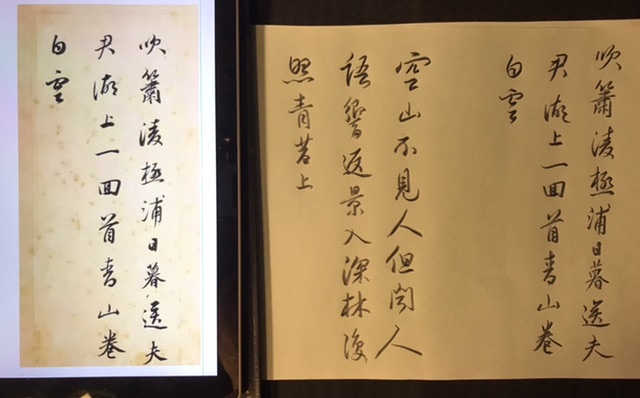 吹簫凌極浦日暮送夫
君湖上一回首青山卷
白雲
吹簫凌極浦日暮送夫
君湖上一回首青山卷
白雲
空山不見人但聞人
語響返景入深林復
照青苔上